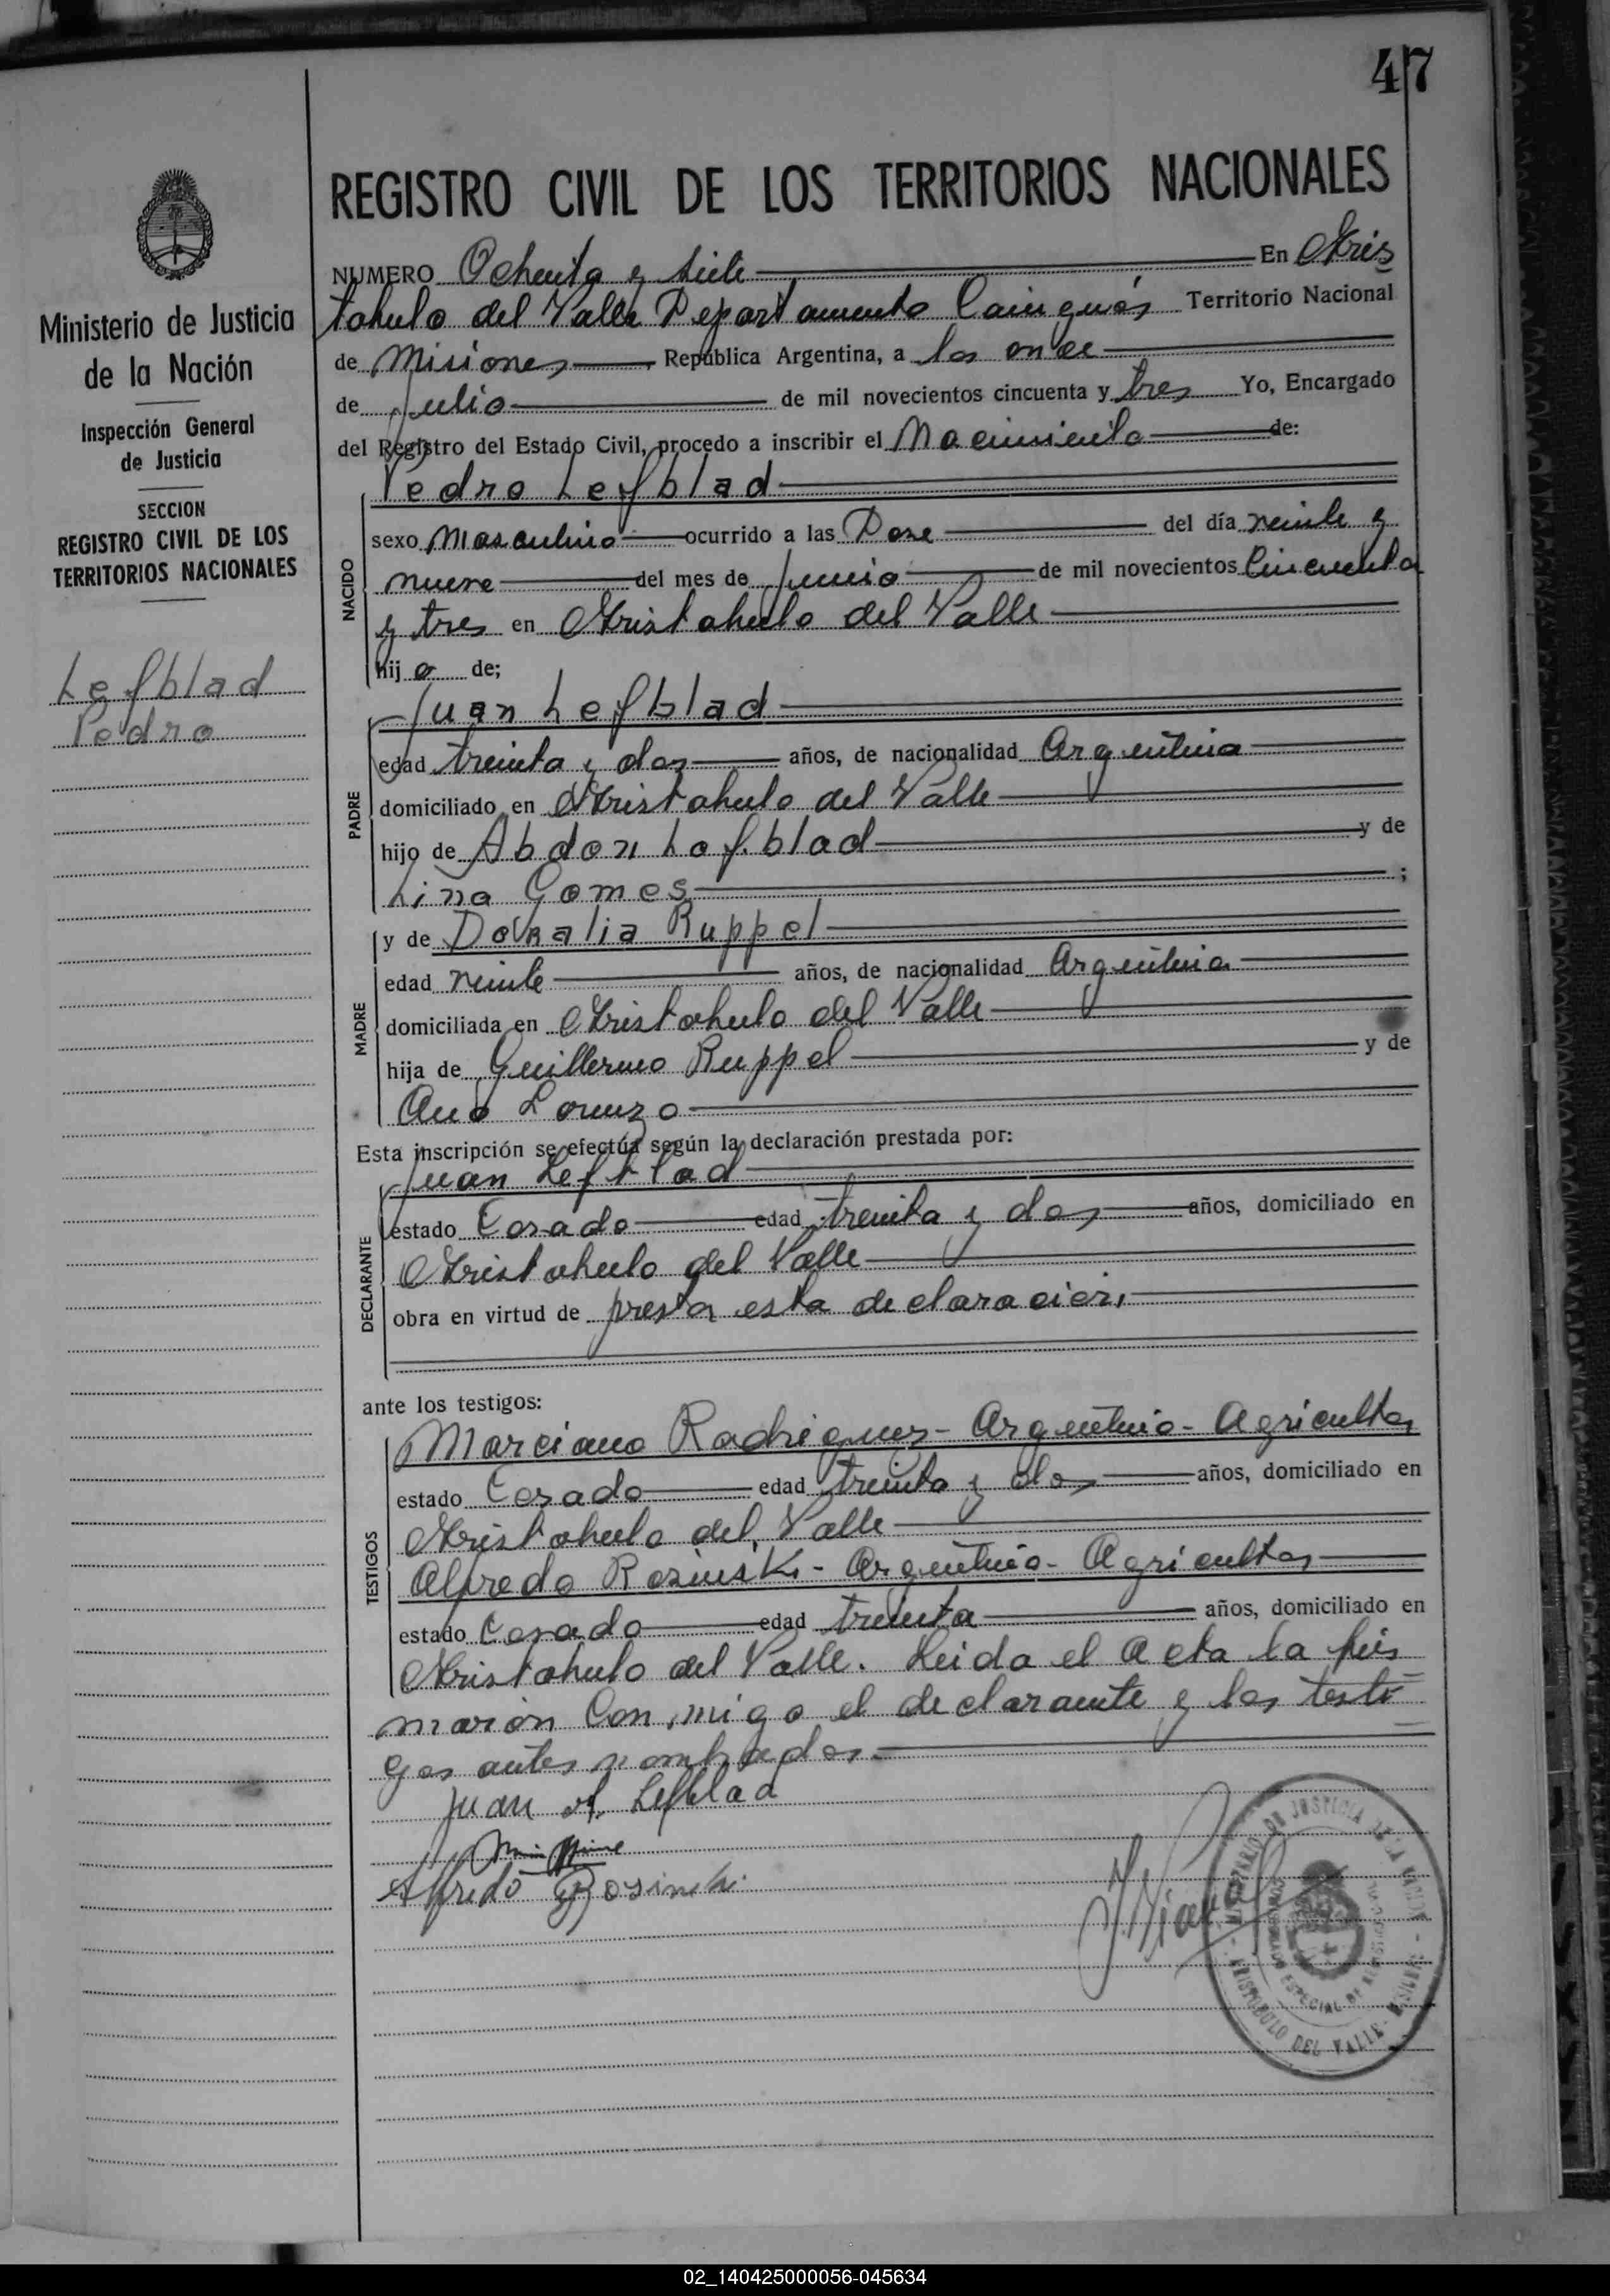 47
REGISTRO CIVIL DE LOS TERRITORIOS NACIONALES
Ministerio de Justicia
de la Nación
Inspección General
de Justicia
SECCION
REGISTRO CIVIL DE LOS
TERRITORIOS NACIONALES
Lefblad
Pedro
NUMERO Ochenta y siete En Aris
tobulo del Valle Departamento Cainguás Territorio Nacional
de Misiones República Argentina, a los once
de Julio de mil novecientos cincuenta y tres Yo, Encargado
del Registro del Estado Civil, procedo a inscribir el Nacimiento de:
Pedro Lefblad
NACIDO
sexo Masculino ocurrido a las Doze del día veinte y
nueve del mes de Junio de mil novecientos Cincuenta
y tres en Aristobulo del Valle
hijo de;
Juan Lefblad
PADRE
edad treinta y dos años, de nacionalidad Argentina
domiciliado en Aristobulo del Valle
hijo de Abdon Lofblad y de
Lina Gomes ;
y de Doralia Ruppel
MADRE
edad veinte años, de nacionalidad Argentina
domiciliada en Aristobulo del Valle
hija de Guillermo Ruppel y de
Ana Lorenzo
Esta inscripción se efectúa según la declaración prestada por:
Juan Lefblad
DECLARANTE
estado Casado edad treinta y dos años, domiciliado en
Aristobulo del Valle
obra en virtud de prestar esta declaración,
ante los testigos:
Marciano Rodriguez - Argentino - Agricultor
TESTIGOS
estado Casado edad treinta y dos años, domiciliado en
Aristobulo del Valle
Alfredo Rosinski - Argentino - Agricultor
estado Casado edad treinta años, domiciliado en
Aristobulo del Valle. Leida el Acta la fir
maron Conmigo el declarante y los testi
gos antes nombrados.
Juan A. Lefblad
Alfredo Rosinski
MINISTERIO DE JUSTICIA DE LA NACION
ARISTOBULO DEL VALLE - MISIONES
02_140425000056-045634